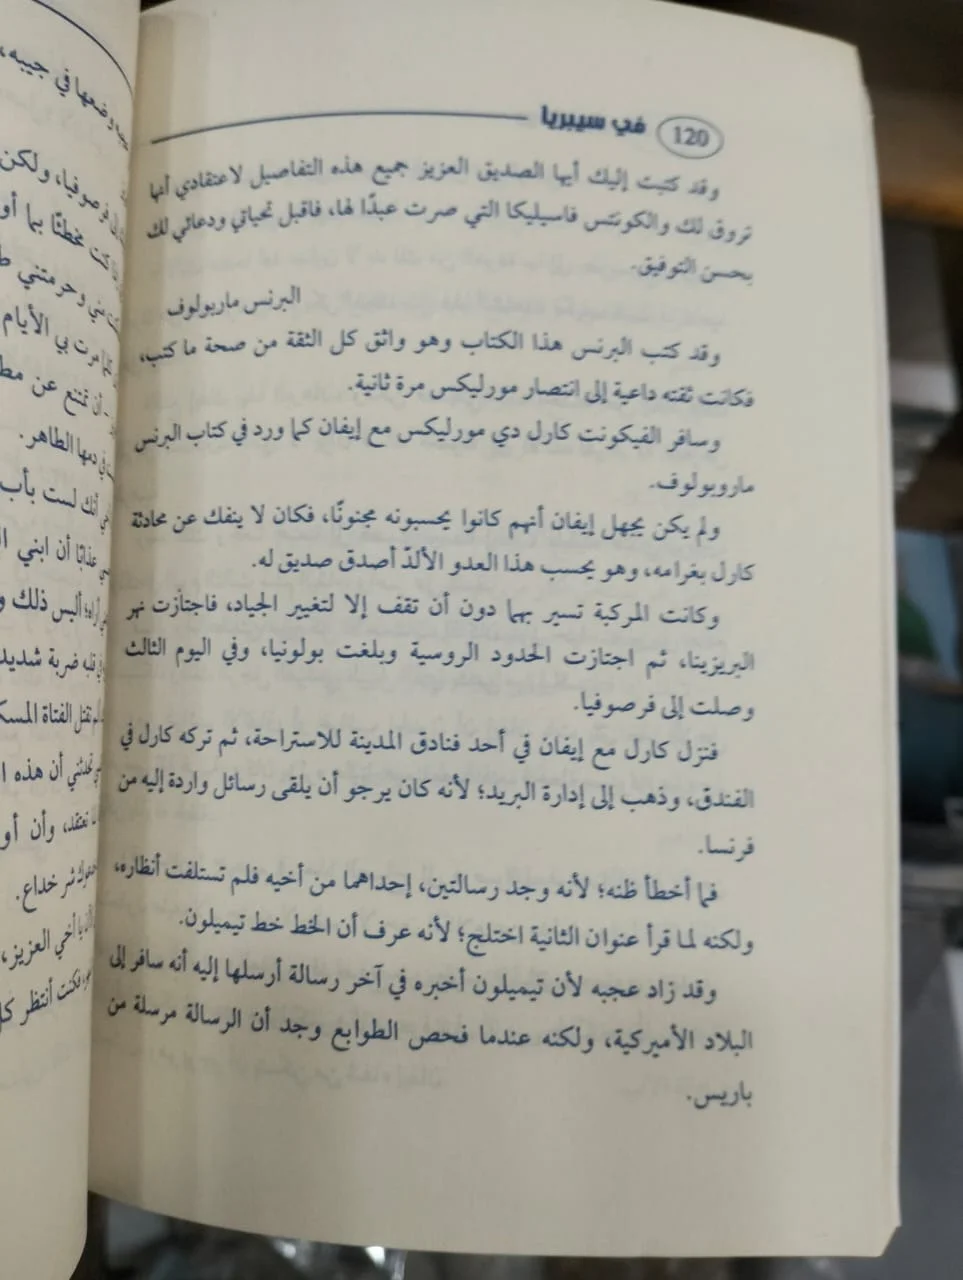 120 في سيبريا
وقد كتبت إليك أيها الصديق العزيز جميع هذه التفاصيل لاعتقادي أنها
تروق لك والكونتس فاسيليكا التي صرت عبدًا لها، فاقبل تحياتي ودعائي لك
بحسن التوفيق.
البرنس ماربولوف
وقد كتب البرنس هذا الكتاب وهو واثق كل الثقة من صحة ما كتب،
فكانت ثقته داعية إلى انتصار مورليكس مرة ثانية.
وسافر الفيكونت كارل دي مورليكس مع إيفان كما ورد في كتاب البرنس
ماروبولوف.
ولم يكن يجهل إيفان أنهم كانوا يحسبونه مجنونًا، فكان لا ينفك عن محادثة
كارل بغرامه، وهو يحسب هذا العدو الألدّ أصدق صديق له.
وكانت المركبة تسير بهما دون أن تقف إلا لتغيير الجياد، فاجتازت نهر
البريزينا، ثم اجتازت الحدود الروسية وبلغت بولونيا، وفي اليوم الثالث
وصلت إلى فرصوفيا.
فنزل كارل مع إيفان في أحد فنادق المدينة للاستراحة، ثم تركه كارل في
الفندق، وذهب إلى إدارة البريد؛ لأنه كان يرجو أن يلقى رسائل واردة إليه من
فرنسا.
فما أخطأ ظنه؛ لأنه وجد رسالتين، إحداهما من أخيه فلم تستلفت أنظاره،
ولكنه لما قرأ عنوان الثانية اختلج؛ لأنه عرف أن الخط خط تيميلون.
وقد زاد عجبه لأن تيميلون أخبره في آخر رسالة أرسلها إليه أنه سافر إلى
البلاد الأميركية، ولكنه عندما فحص الطوابع وجد أن الرسالة مرسلة من
باريس.
وضعها في جيبه،
فرصوفيا، ولكن
كنت مخطئًا بما أو
مني وحرمتني
كلما مرت بي الأيام
أن تمتنع عن
في دمها الطاهر.
أنك لست بأب
عذابًا أن ابني
أراه؛ أليس ذلك و
قلبه ضربة شديد
تقتل الفتاة
تحدثني أن هذه ا
نعتقد، وأن أو
شر خداع.
يا أخي العزيز،
فكنت أنتظر